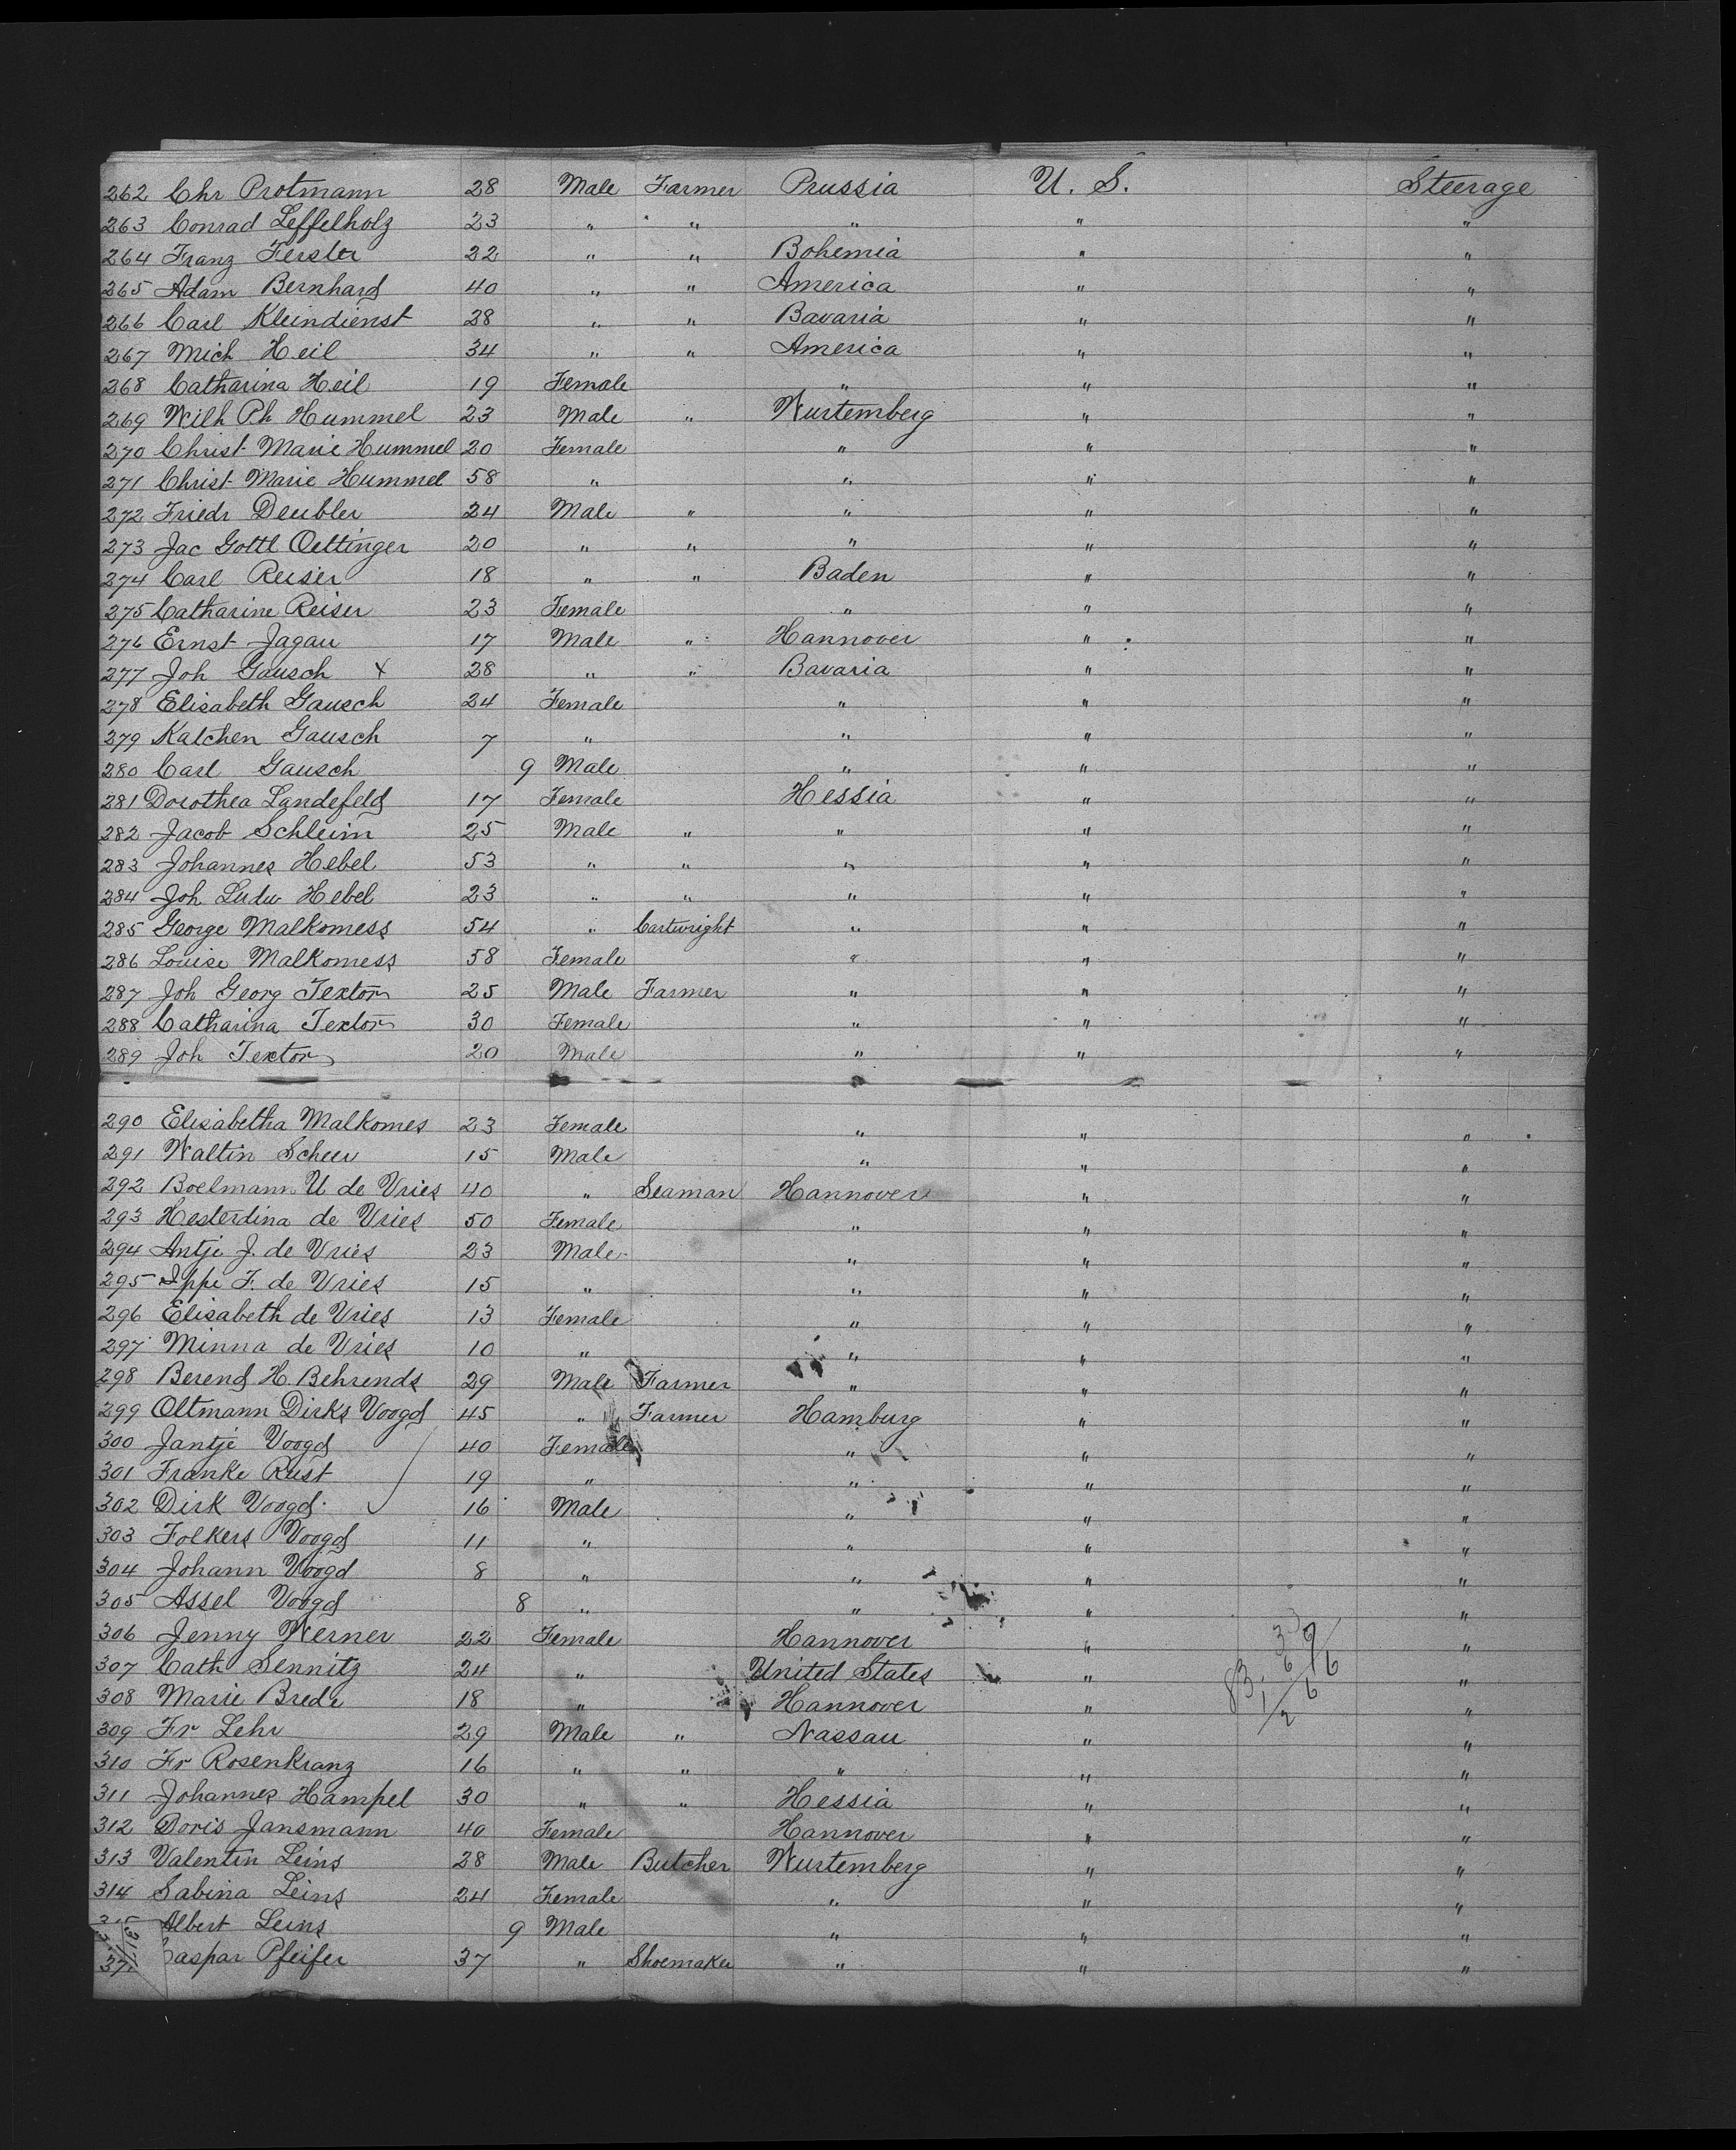 262 Chr Protmann 28 Male Farmer Prussia U. S. Steerage
263 Conrad Leffelholz 23 " " " " "
264 Franz Ferster 22 " " Bohemia " "
265 Adam Bernhard 40 " " America " "
266 Carl Kleindienst 28 " " Bavaria " "
267 Mich Heil 34 " " America " "
268 Catharina Heil 19 Female " " "
269 Wilh Ph Hummel 23 Male " Wurtemberg " "
270 Christ Marie Hummel 20 Female " " "
271 Christ Marie Hummel 58 " " " "
272 Friedr Deubler 24 Male " " " "
273 Jac Gottl Oettinger 20 " " " " "
274 Carl Reiser 18 " " Baden " "
275 Catharine Reiser 23 Female " " "
276 Ernst Jagau 17 Male " Hannover " "
277 Joh Gausch X 28 " " Bavaria " "
278 Elisabeth Gausch 24 Female " " "
279 Katchen Gausch 7 " " " "
280 Carl Gausch 9 Male " " "
281 Dorothea Landefeld 17 Female Hessia " "
282 Jacob Schleim 25 Male " " " "
283 Johannes Hebel 53 " " " " "
284 Joh Ludw Hebel 23 " " " " "
285 George Malkomess 54 " Cartwright " " "
286 Louise Malkomess 58 Female " " "
287 Joh Georg Textor 25 Male Farmer " " "
288 Catharina Textor 30 Female " " "
289 Joh Textor 20 Male " " "
290 Elisabetha Malkomes 23 Female " " "
291 Waltin Scheer 15 Male " " "
292 Boelmann U de Vries 40 " Seaman Hannover " "
293 Hesterdina de Vries 50 Female " " "
294 Antje J. de Vries 23 Male " " "
295 Ippe F. de Vries 15 " " " "
296 Elisabeth de Vries 13 Female " " "
297 Minna de Vries 10 " " " "
298 Berend H. Behrends 29 Male Farmer " " "
299 Oltmann Dirks Voogd 45 " Farmer Hamburg " "
300 Jantje Voogd 40 Female " " "
301 Franke Rust 19 " " " "
302 Dirk Voogd 16 Male " " "
303 Folkers Voogd 11 " " " "
304 Johann Voogd 8 " " " "
305 Assel Voogd 8 " " " "
306 Jenny Werner 22 Female Hannover " "
307 Cath Sennitz 24 " United States " "
308 Marie Brede 18 " Hannover " "
309 Fr Lehr 29 Male " Nassau " "
310 Fr Rosenkranz 16 " " " " "
311 Johannes Hampel 30 " " Hessia " "
312 Doris Jansmann 40 Female Hannover " "
313 Valentin Leins 28 Male Butcher Wurtemberg " "
314 Sabina Leins 24 Female " " "
Albert Leins 9 Male " " "
Caspar Pfeifer 37 " Shoemaker " " "